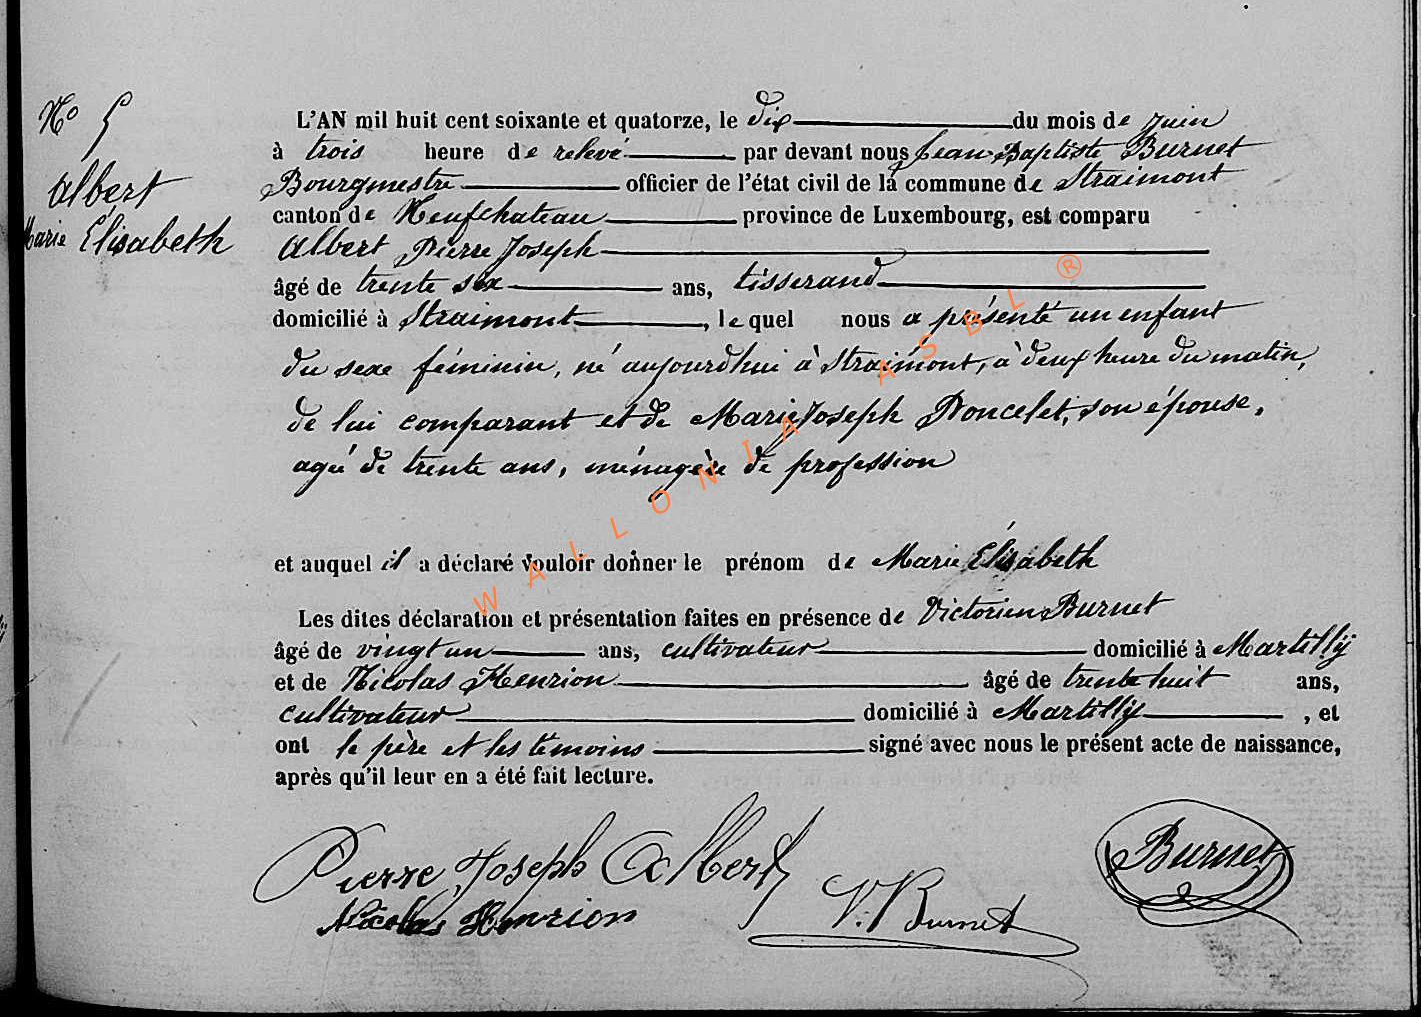 N° 5
Albert
Marie Élisabeth
L'AN mil huit cent soixante et quatorze, le dix du mois de juin
à trois heure de relevé par devant nous Jean Baptiste Burnet
Bourgmestre officier de l'état civil de la commune de Straimont
canton de Neufchateau province de Luxembourg, est comparu
Albert Pierre Joseph
âgé de trente six ans, tisserand
domicilié à Straimont, le quel nous a présenté un enfant
du sexe féminin, né aujourdhui à Straimont, à deux heure du matin,
de lui comparant et de Marie Joseph Poncelet, son épouse,
agée de trente ans, ménagère de profession
et auquel il a déclaré vouloir donner le prénom de Marie Élisabeth
Les dites déclaration et présentation faites en présence de Victorien Burnet
âgé de vingt un ans, cultivateur domicilié à Martilly
et de Nicolas Henrion âgé de trente huit ans,
cultivateur domicilié à Martilly, et
ont le père et les témoins signé avec nous le présent acte de naissance,
après qu'il leur en a été fait lecture.
Pierre Joseph Albert
Burnet
Nicolas Henrion
V. Burnet
WALLONIA ASBL ®